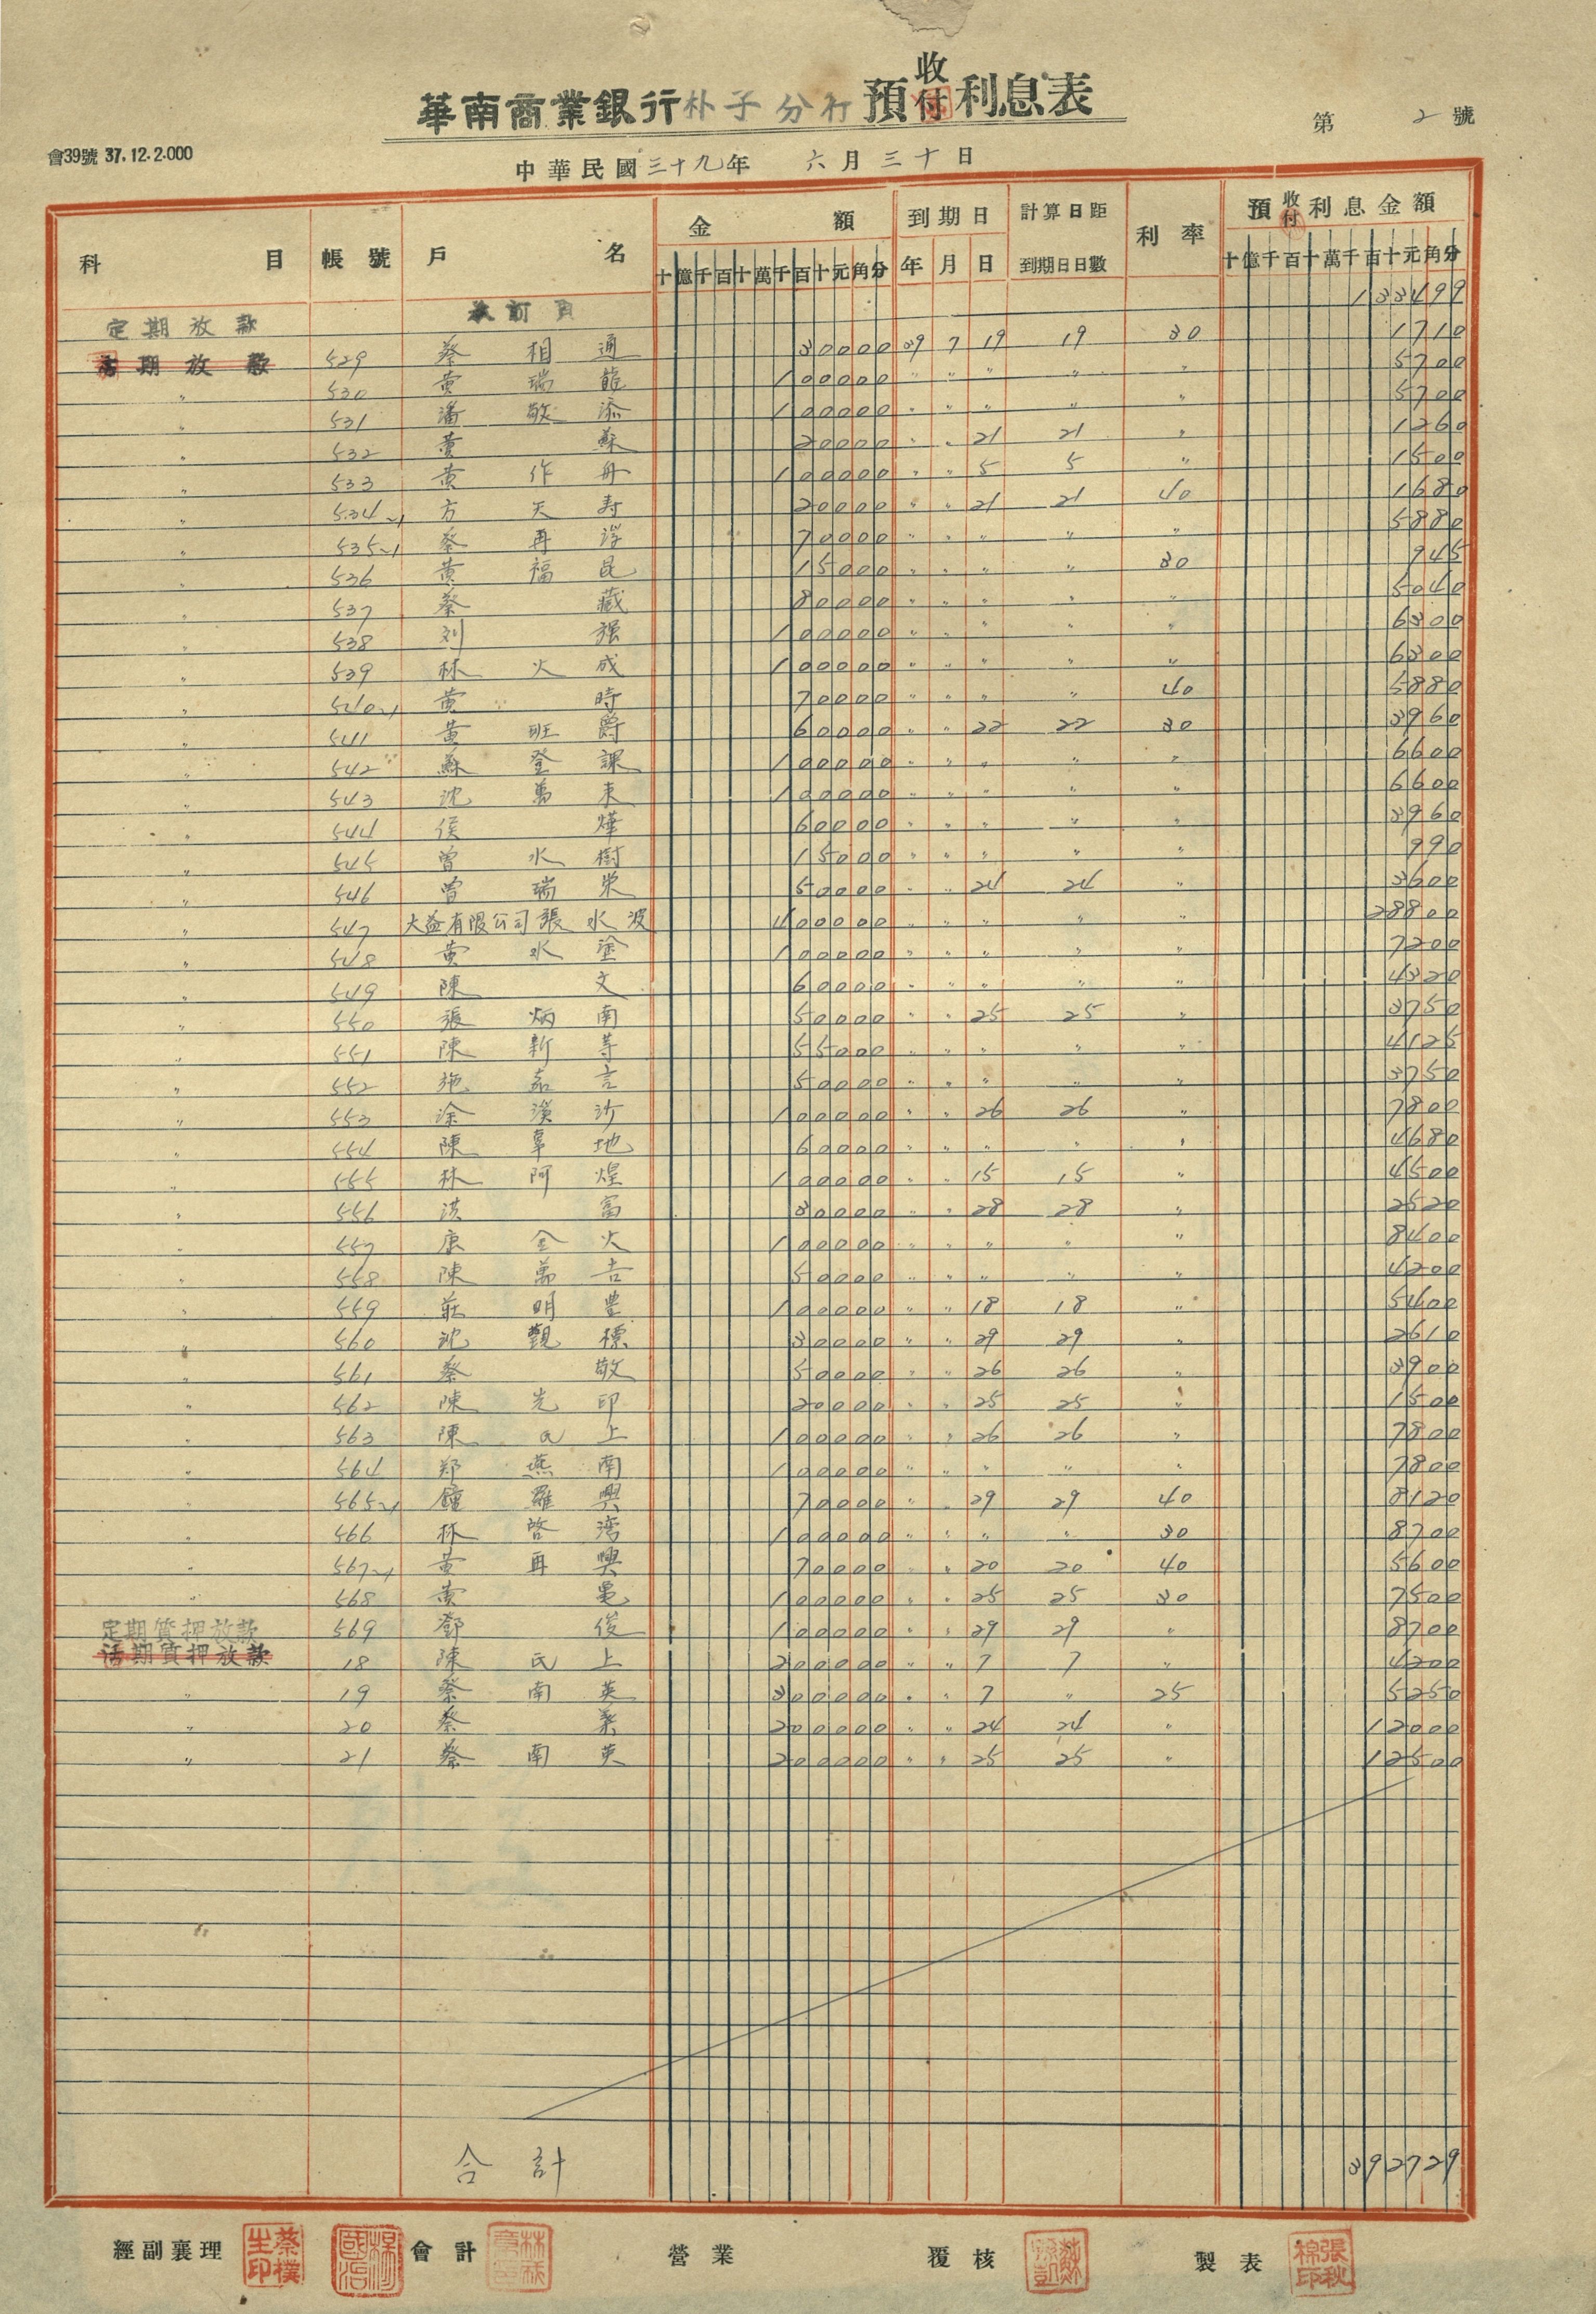 華南商業銀行朴子分行預收付利息表
第 2 號
會39號 37.12.2.000
中華民國三十九年 六月三十日
科目 帳號 戶名 金額 到期日 計算日距到期日日數 利率 預收付利息金額
十億千百十萬千百十元角分 年 月 日 十億千百十萬千百十元角分
承前頁 133499
定期放款
活期放款 529 蔡相通 30000 39 7 19 19 30 1710
〃 530 黄瑞龍 100000 〃 〃 〃 〃 〃 5700
〃 531 潘敬添 100000 〃 〃 〃 〃 〃 5700
〃 532 黄蘇 20000 〃 〃 21 21 〃 1260
〃 533 黄作舟 100000 〃 〃 5 5 〃 1500
〃 534~1 方天寿 20000 〃 〃 21 21 40 1680
〃 535~1 蔡再 70000 〃 〃 〃 〃 〃 5880
〃 536 黄福昆 15000 〃 〃 〃 〃 30 945
〃 537 蔡藏 80000 〃 〃 〃 〃 〃 5040
〃 538 刘强 100000 〃 〃 〃 〃 〃 6300
〃 539 林火成 100000 〃 〃 〃 〃 〃 6300
〃 540~1 黄時 70000 〃 〃 〃 〃 40 5880
〃 541 黄班爵 60000 〃 〃 22 22 30 3960
〃 542 蘇登課 100000 〃 〃 〃 〃 〃 6600
〃 543 沈萬来 100000 〃 〃 〃 〃 〃 6600
〃 544 侯燁 60000 〃 〃 〃 〃 〃 3960
〃 545 曾水樹 15000 〃 〃 〃 〃 〃 990
〃 546 曾瑞栄 50000 〃 〃 24 24 〃 3600
〃 547 大益有限公司張水波 400000 〃 〃 〃 〃 〃 28800
〃 548 黄水塗 100000 〃 〃 〃 〃 〃 7200
〃 549 陳文 60000 〃 〃 〃 〃 〃 4320
〃 550 張炳南 50000 〃 〃 25 25 〃 3750
〃 551 陳新等 55000 〃 〃 〃 〃 〃 4125
〃 552 施嘉言 50000 〃 〃 〃 〃 〃 3750
〃 553 涂漢沂 100000 〃 〃 26 26 〃 7800
〃 554 陳草地 60000 〃 〃 〃 〃 〃 4680
〃 555 林阿煌 100000 〃 〃 15 15 〃 4500
〃 556 洪富 30000 〃 〃 28 28 〃 2520
〃 557 康金火 100000 〃 〃 〃 〃 〃 8400
〃 558 陳萬吉 50000 〃 〃 〃 〃 〃 4200
〃 559 莊明豊 100000 〃 〃 18 18 〃 5400
〃 560 沈觀標 30000 〃 〃 29 29 〃 2610
〃 561 蔡敬 50000 〃 〃 26 26 〃 3900
〃 562 陳光印 20000 〃 〃 25 25 〃 1500
〃 563 陳氏上 100000 〃 〃 26 26 〃 7800
〃 564 郑燕南 100000 〃 〃 〃 〃 〃 7800
〃 565~1 鐘羅興 70000 〃 〃 29 29 40 8120
〃 566 林啓湾 100000 〃 〃 〃 〃 30 8700
〃 567~1 黄再興 70000 〃 〃 20 20 40 5600
〃 568 黄 100000 〃 〃 25 25 30 7500
定期質押放款 569 鄧俊 100000 〃 〃 29 29 〃 8700
活期質押放款 18 陳氏上 200000 〃 〃 7 7 〃 4200
〃 19 蔡南英 300000 〃 〃 7 〃 25 5250
〃 20 蔡 200000 〃 〃 24 24 〃 12000
〃 21 蔡南英 200000 〃 〃 25 25 〃 12500
合計 392729
經副襄理 蔡樸生印 會計 營業 覆核 製表 張秋棉印